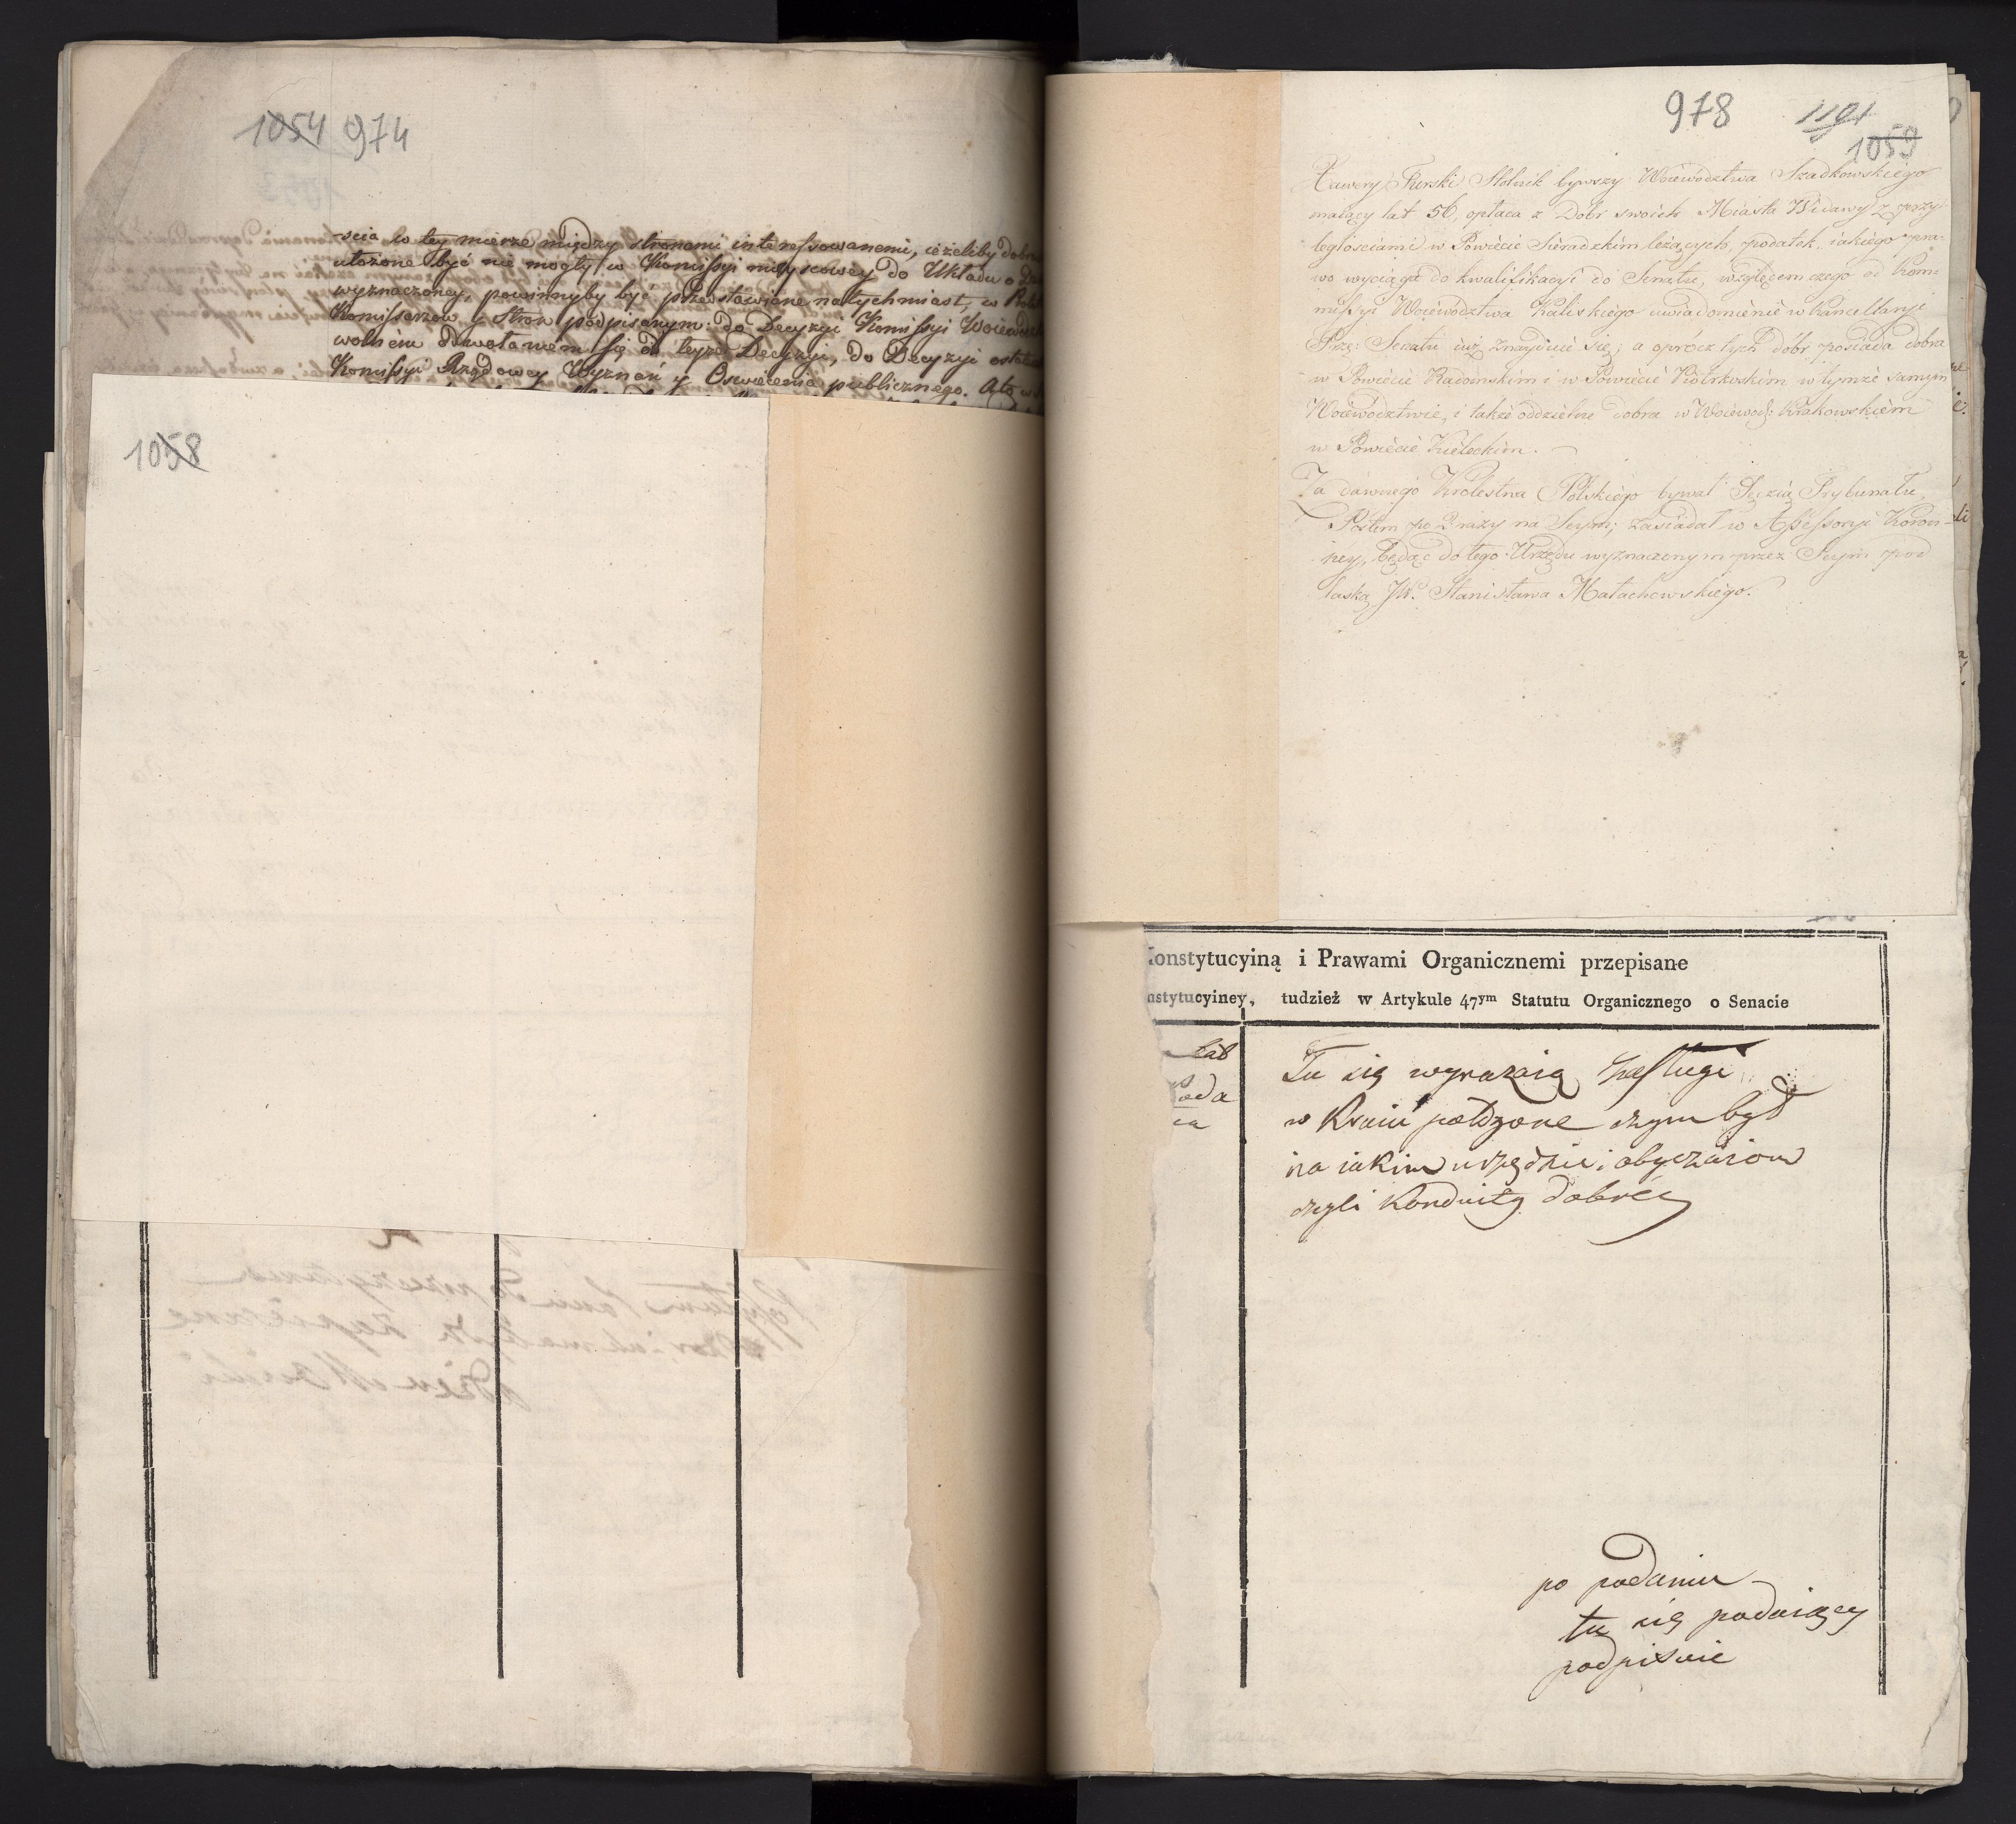 1054 974
scia w tey mierze między stronami interessowanemi, ieżeliby dobro
ułożone być nie mogły w Kommissyi mieyscowey do Układu o
wyznaczoney, powinnyby być przedstawione natychmiast, w
Kommissarzow y Stron podpisanym: do Decyzyi Komissyi Woiewodz
wolnem odwołaniem się od teyże Decyzyi, do Decyzyi ostate
Komissyi Rządowey Wyznań y Oswiecenia publicznego.
1058
978 1191
1059
Xawery Turski Stolnik bywszy Woiewództwa Szadkowskiego
maiący lat 56, opłaca z Dóbr swoich Miasta Widawy z przy
ległościami w Powiecie Sieradzkim leżących, podatek, iakiego pra-
wo wyciąga do kwalifikacyi do Senatu, względem czego od Kom-
missyi Woiewództwa Kaliskiego uwiadomienie w Kancellaryi
Prze: Senatu iuż znayduie się; a oprócz tych dóbr posiada dobra
w Powiecie Radomskim i w Powiecie Piotrkowskim w tymże samym
Woiewództwie, i także oddzielne dobra w Woiewod: Krakowskiem
w Powiecie Kieleckim.
Za dawnego Krolestwa Polskiego bywał Sędzią Trybunału,
Posłem po 2 razy na Seym; zasiadał w Assessoryi Koron-
ney, będąc do tego Urzędu wyznaczonym przez Seym pod
laską JW. Stanisława Małachowskiego.
Konstytucyiną i Prawami Organicznemi przepisane
nstytucyiney, tudzież w Artykule 47ym Statutu Organicznego o Senacie
Tu się wyrażaią zasługi
w Kraiu położone czym był
na iakim urzędzie i obyczaiow
czyli Konduity dobréy
po podaniu
tu się podaiący
podpisuie